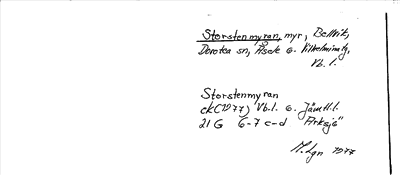 Storstenmyran, myr, Bellvik,
Dorotea sn, Åsele o. Vilhelmina tg,
Vb. l.
Storstenmyran
ek(1977) Vb.l. o. Jämtl.l.
21 G 6-7 c-d "Arksjö"
1977